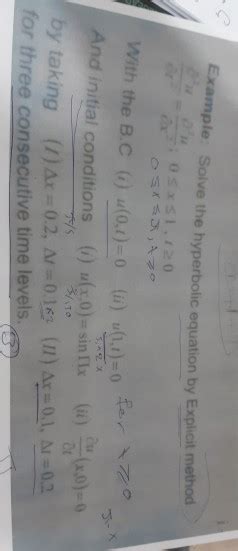 Example: Solve the hyperbolic equation by Explicit method
∂²u/∂t² = ∂²u/∂x² ; 0 ≤ x ≤ 1, t ≥ 0
With the B.C (i) u(0,t)=0 (ii) u(1,t)=0 for
And initial conditions (i) u(x,0)=sin Πx (ii) ∂u/∂t (x,0)=0
by taking (I) Δx=0.2, Δt=0.1 (II) Δx=0.1, Δt=0.2
for three consecutive time levels. (3)